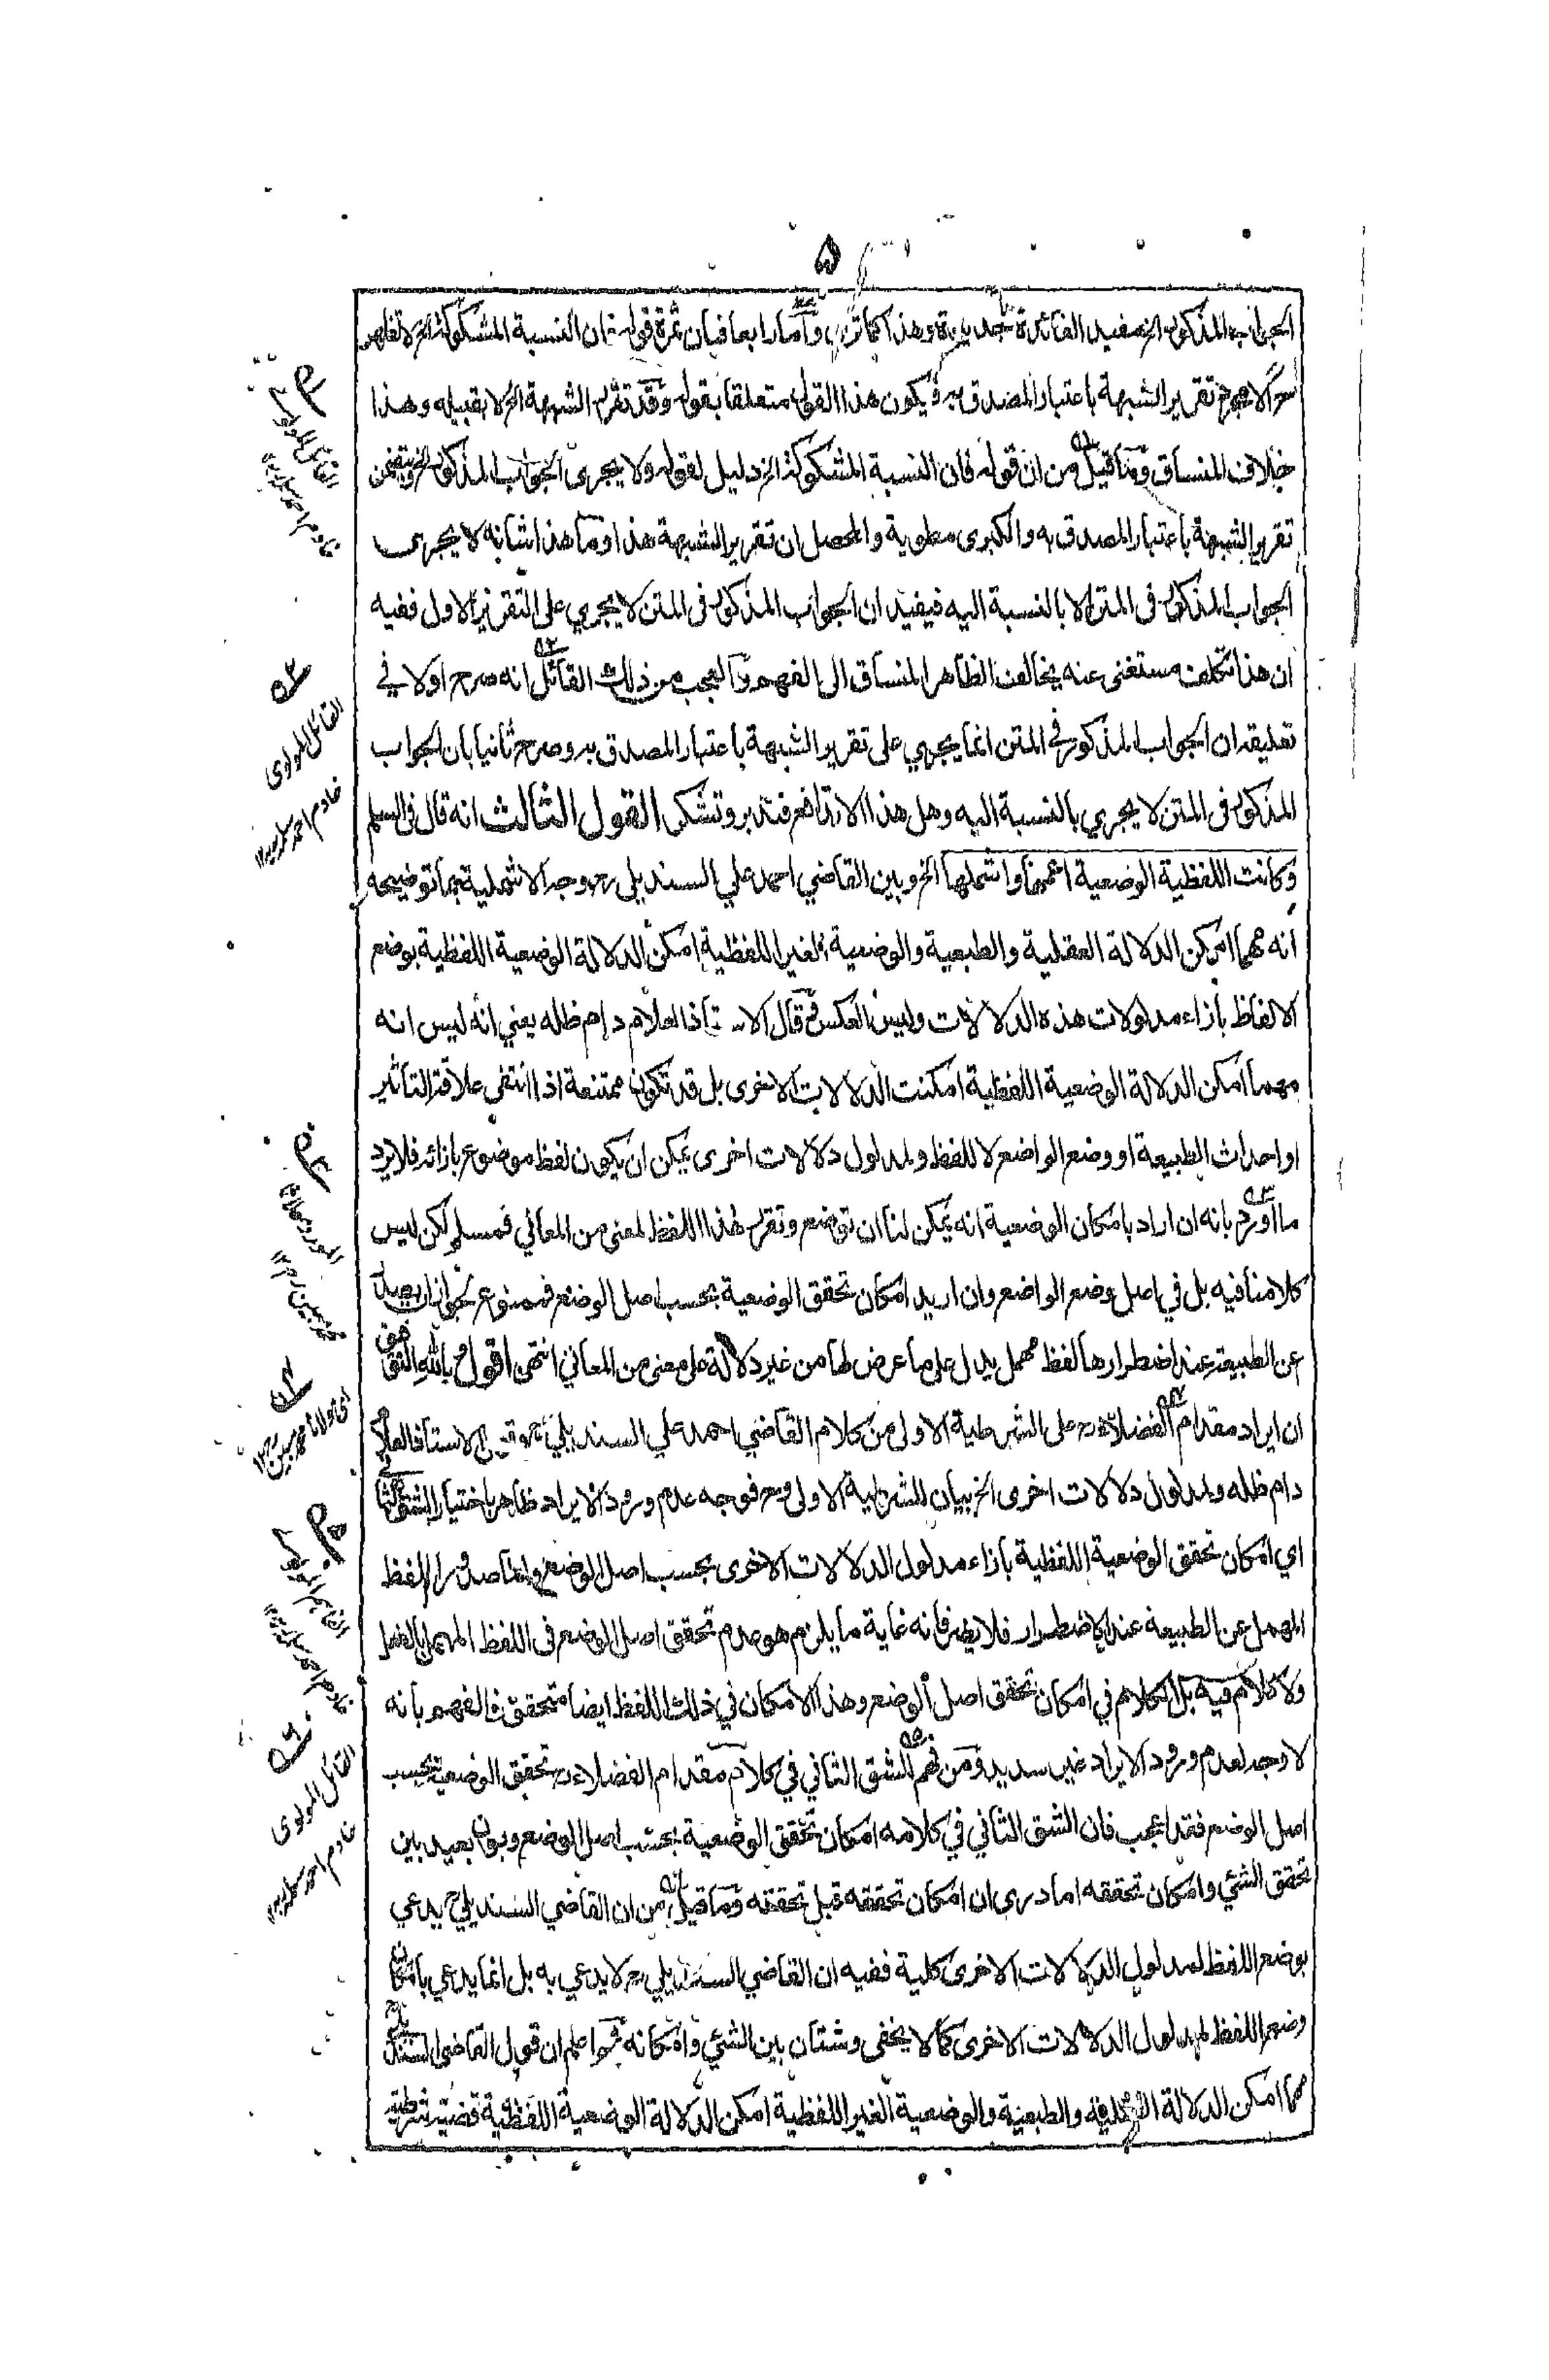 ۵
الجواب المذكور الخ مفيد الفائدة جديدة وهذا كما ترى واما رابعا فبان ثمرة قوله فان النسبة المشكوكة الخ لا تظهر
الا بتقرير الشبهة باعتبار المصدق به فيكون هذا القول متعلقا بقوله وقد تقرر الشبهة الخ لا بقبيله وهذا
خلاف المنساق وما قيل من ان قوله فان النسبة المشكوكة الخ دليل لقوله ولا يجرى الجواب المذكور الخ ويتضمن
تقرير الشبهة باعتبار المصدق به والكبرى مطوية والمحصل ان تقرير الشبهة هذا وما هذا شانه لا يجرى
الجواب المذكور فى المتن الا بالنسبة اليه فيفيد ان الجواب المذكور فى المتن لا يجري على التقرير الاول ففيه
ان هذا تكلف مستغنى عنه يخالف الظاهر المنساق الى الفهم والعجب من ذلك القائل انه صرح اولا في
تعليقه ان الجواب المذكور في المتن انما يجري على تقرير الشبهة باعتبار المصدق به وصرح ثانيا بان الجواب
المذكور فى المتن لا يجري بالنسبة اليه وهل هذا الا تدافع فتدبر وتشكر القول الثالث انه قال فى السلم
وكانت اللفظية الوضعية اعمها واشملها الخ وبين القاضي احمد علي السنديلي رح وجه الاشملية بما توضيحه
انه مهما امكن الدلالة العقلية والطبعية والوضعية الغير اللفظية امكن الدلالة الوضعية اللفظية بوضع
الالفاظ بازاء مدلولات هذه الدلالات وليس العكس قال الاستاذ العلام دام ظله يعني انه ليس انه
مهما امكن الدلالة الوضعية اللفظية امكنت الدلالات الاخرى بل قد تكون ممتنعة اذا انتفى علاقة التاثير
او احداث الطبيعة او وضع الواضع لا للفظ ولمدلول دلالات اخرى يمكن ان يكون لفظ موضوع بازائه فلا يرد
ما اورد بانه ان اراد بامكان الوضعية انه يمكن لنا ان نوضع ونقرر هذا اللفظ لمعنى من المعاني فمسلم لكن ليس
كلامنا فيه بل في اصل وضع الواضع وان اريد امكان تحقق الوضعية بحسب اصل الوضع فممنوع لجواز ان يصدر
عن الطبيعة عند اضطرارها لفظ مهمل يدل على ما عرض لها من غير دلالة على معنى من المعاني انتهى اقول وبالله التوفيق
ان ايراد مقدام الفضلاء رح على الشرطية الاولى من كلام القاضي احمد علي السنديلي رح وقول الاستاذ العلام
دام ظله ولمدلول دلالات اخرى الخ بيان للشرطية الاولى وح فوجه عدم ورود الايراد ظاهر باختيار الشق الثاني
اي امكان تحقق الوضعية اللفظية بازاء مدلول الدلالات الاخرى بحسب اصل الوضع واما صدور اللفظ
المهمل عن الطبيعة عند الاضطرار فلا يضر فانه غاية ما يلزم هو عدم تحقق اصل الوضع فى اللفظ المهمل بالفعل
ولا كلام فيه بل الكلام في امكان تحقق اصل الوضع وهذا الامكان في ذلك اللفظ ايضا متحقق فالفهم بانه
لا وجه لعدم ورود الايراد غير سديد ومن فهم الشق الثاني في كلام مقدام الفضلاء رح تحقق الوضعية بحسب
اصل الوضع فقد اعجب فان الشق الثاني في كلامه امكان تحقق الوضعية بحسب اصل الوضع وبون بعيد بين
تحقق الشئي وامكان تحققه اما درى ان امكان تحققه قبل تحققه وما قيل من ان القاضي السنديلي رح يدعي
بوضع اللفظ لمدلول الدلالات الاخرى كلية ففيه ان القاضي السنديلي رح لا يدعي به بل انما يدعي بامكان
وضع اللفظ لمدلول الدلالات الاخرى كما لا يخفى وشتان بين الشئي وامكانه ثم اعلم ان قول القاضى السنديلي
مهما امكن الدلالة العقلية والطبعية والوضعية الغير اللفظية امكن الدلالة الوضعية اللفظية قضية شرطية
القائل المولوى
خادم احمد سلمه ١٢
القائل المولوى
خادم احمد سلمه ١٢
المورد مولانا
محمد مبين رح ١٢
اى مولانا محمد مبين رح ١٢
الفاهم المولوى
خادم احمد سلمه ١٢
القائل المولوى
خادم احمد سلمه ١٢